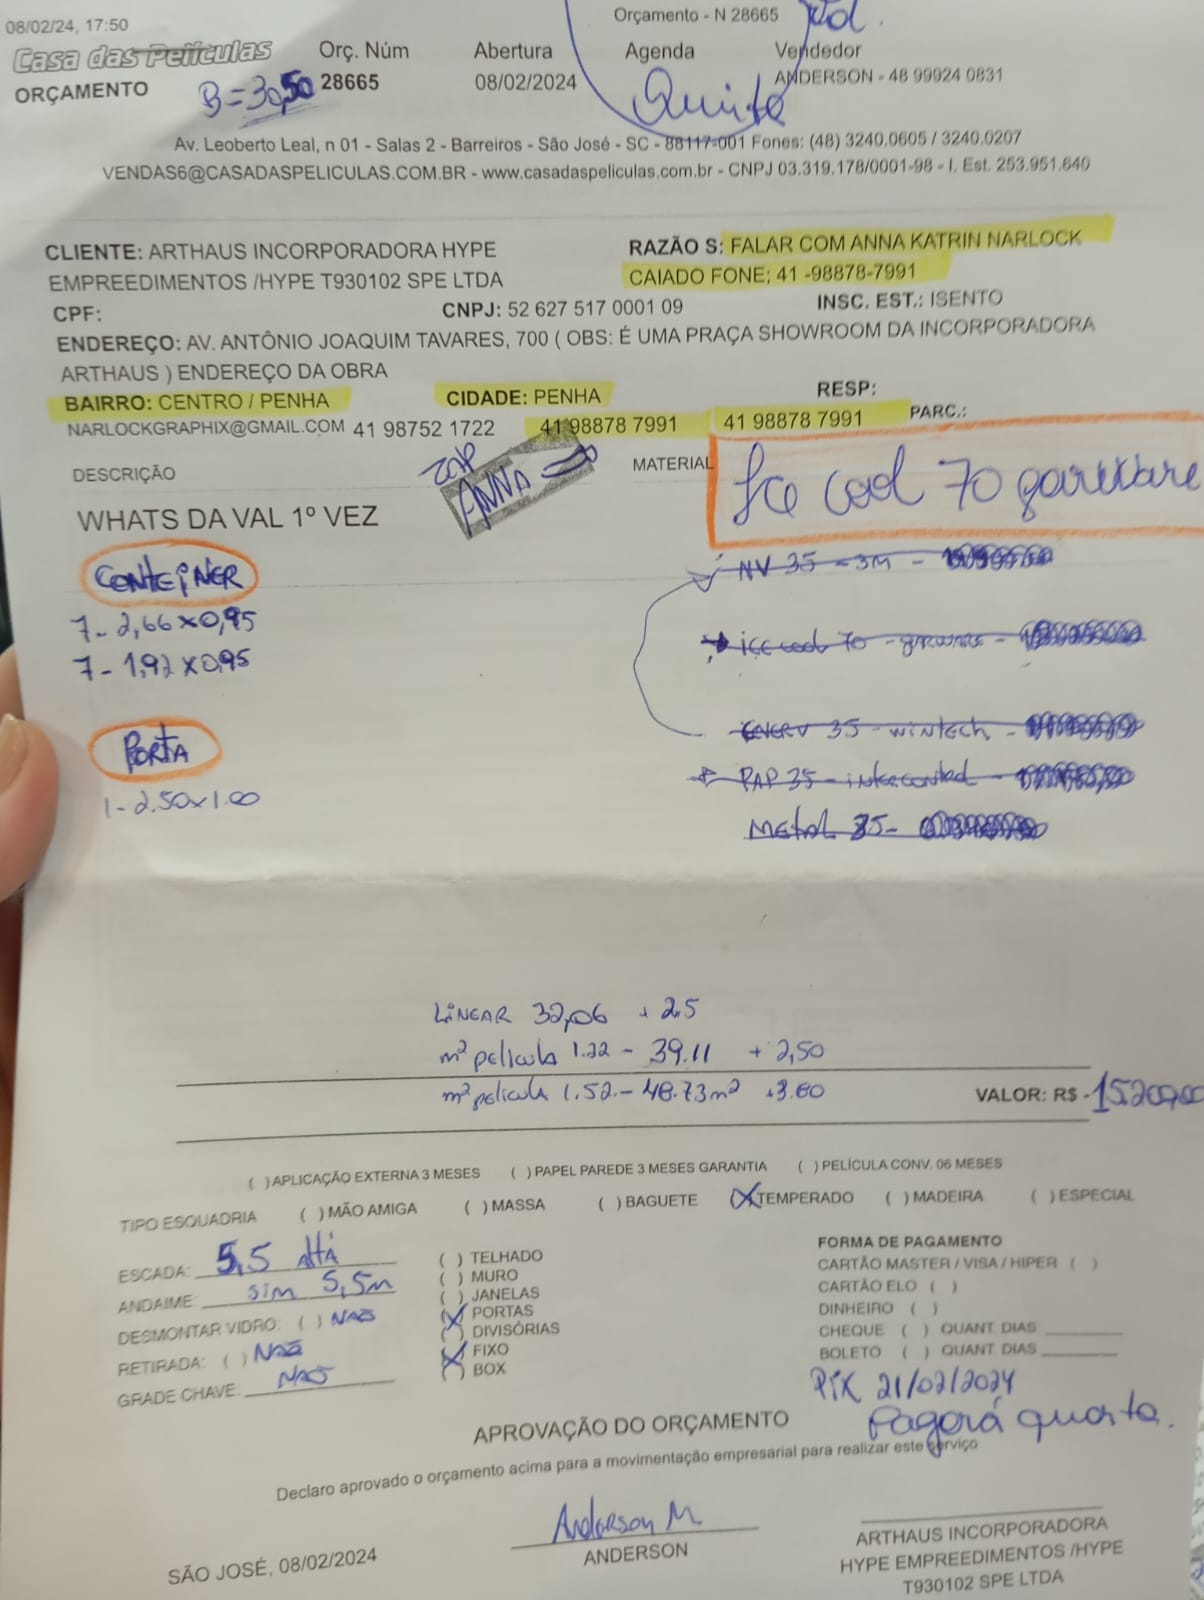 08/02/24, 17:50
Orçamento - N 28665
Casa das Películas
ORÇAMENTO
B=30,50
Orç. Núm
28665
Abertura
08/02/2024
Agenda
Quinta
Vendedor
ANDERSON - 48 99924 0831
Av. Leoberto Leal, n 01 - Salas 2 - Barreiros - São José - SC - 88117-001 Fones: (48) 3240.0605 / 3240.0207
VENDAS6@CASADASPELICULAS.COM.BR - www.casadaspeliculas.com.br - CNPJ 03.319.178/0001-98 - I. Est. 253.951.640
CLIENTE: ARTHAUS INCORPORADORA HYPE
EMPREEDIMENTOS /HYPE T930102 SPE LTDA
RAZÃO S: FALAR COM ANNA KATRIN NARLOCK
CAIADO FONE; 41 -98878-7991
CPF:
CNPJ: 52 627 517 0001 09
INSC. EST.: ISENTO
ENDEREÇO: AV. ANTÔNIO JOAQUIM TAVARES, 700 ( OBS: É UMA PRAÇA SHOWROOM DA INCORPORADORA
ARTHAUS ) ENDEREÇO DA OBRA
BAIRRO: CENTRO / PENHA
CIDADE: PENHA
RESP:
NARLOCKGRAPHIX@GMAIL.COM 41 98752 1722
41 98878 7991
41 98878 7991
PARC.:
DESCRIÇÃO
ZAP
ANNA
MATERIAL
Ice cool 70 garware
WHATS DA VAL 1º VEZ
CONTEINER
7- 2,66 x 0,95
7- 1,92 x 0,95
PORTA
1- 2.50x1.00
NV 35 - 3M -
ice cool 70 - garware -
35 - wintech -
PAP 35 - intercontrol -
Metal 35 -
LINEAR 32,06 + 2.5
m² pelicula 1.22 - 39.11 + 2,50
m² pelicula 1.52 - 48.73m² +3.80
VALOR: R$ - 15.200,00
( ) APLICAÇÃO EXTERNA 3 MESES ( ) PAPEL PAREDE 3 MESES GARANTIA ( ) PELÍCULA CONV. 06 MESES
TIPO ESQUADRIA ( ) MÃO AMIGA ( ) MASSA ( ) BAGUETE (X) TEMPERADO ( ) MADEIRA ( ) ESPECIAL
ESCADA: 5,5 Altá
ANDAIME: sim 5,5m
DESMONTAR VIDRO: ( ) NÃO
RETIRADA: ( ) NÃO
GRADE CHAVE: NÃO
( ) TELHADO
( ) MURO
( ) JANELAS
(X) PORTAS
( ) DIVISÓRIAS
(X) FIXO
( ) BOX
FORMA DE PAGAMENTO
CARTÃO MASTER / VISA / HIPER ( )
CARTÃO ELO ( )
DINHEIRO ( )
CHEQUE ( ) QUANT. DIAS
BOLETO ( ) QUANT DIAS
PIX 21/02/2024
Pagará quarta.
APROVAÇÃO DO ORÇAMENTO
Declaro aprovado o orçamento acima para a movimentação empresarial para realizar este serviço
Anderson M.
ANDERSON
SÃO JOSÉ, 08/02/2024
ARTHAUS INCORPORADORA
HYPE EMPREEDIMENTOS /HYPE
T930102 SPE LTDA